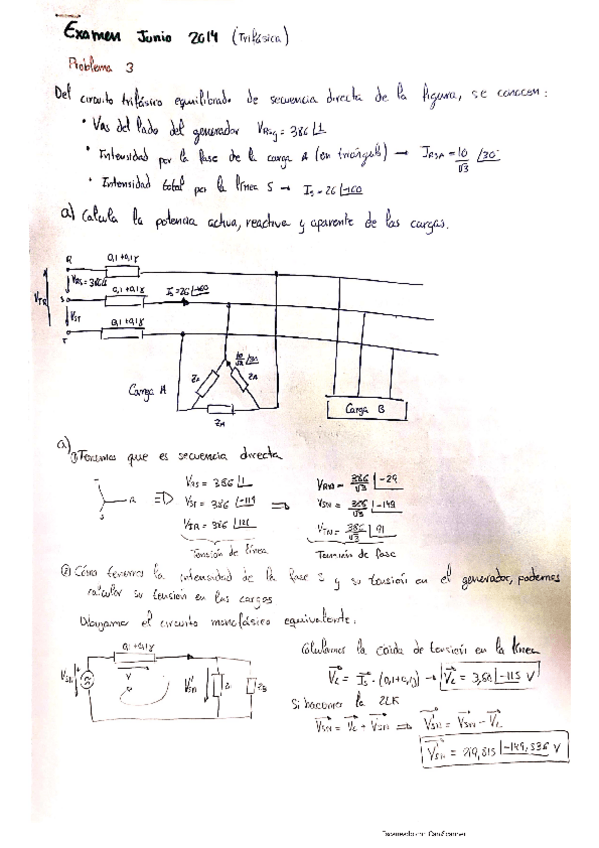 Examen Junio 2014 (Trifásica)
Problema 3
Del circuito trifásico equilibrado de secuencia directa de la figura, se conocen:
• VRS del lado del generador VRSg = 386∠1
• Intensidad por la fase de la carga A (en triángulo) → IRSA = 10/√3 ∠30
• Intensidad total por la línea S → IS = 26∠-160
a) Calcula la potencia activa, reactiva y aparente de las cargas.
R 0,1+0,1j
VRS = 386∠1
VTR S 0,1+0,1j IS=26∠-160
VST
T 0,1+0,1j
10/√3
ZA ZA
Carga A
ZA
Carga B
a)
① Tenemos que es secuencia directa
T R S
VRS = 386∠1
VST = 386∠-119
VTR = 386∠121
Tensión de línea
VRN = 386/√3 ∠-29
VSN = 386/√3 ∠-149
VTN = 386/√3 ∠91
Tensión de fase
② Cómo tenemos la intensidad de la fase S y su tensión en el generador, podemos
calcular su tensión en las cargas
Dibujamos el circuito monofásico equivalente:
0,1+0,1j
VSN
V'SN
ZB
Calculamos la caida de tensión en la línea
VL = IS · (0,1+0,1j) → VL = 3,68∠-115 V
Si hacemos la 2LK
VSN = VL + V'SN ⇒ V'SN = VSN - VL
V'SN = 219,815∠-149,536 V
Escaneado con CamScanner